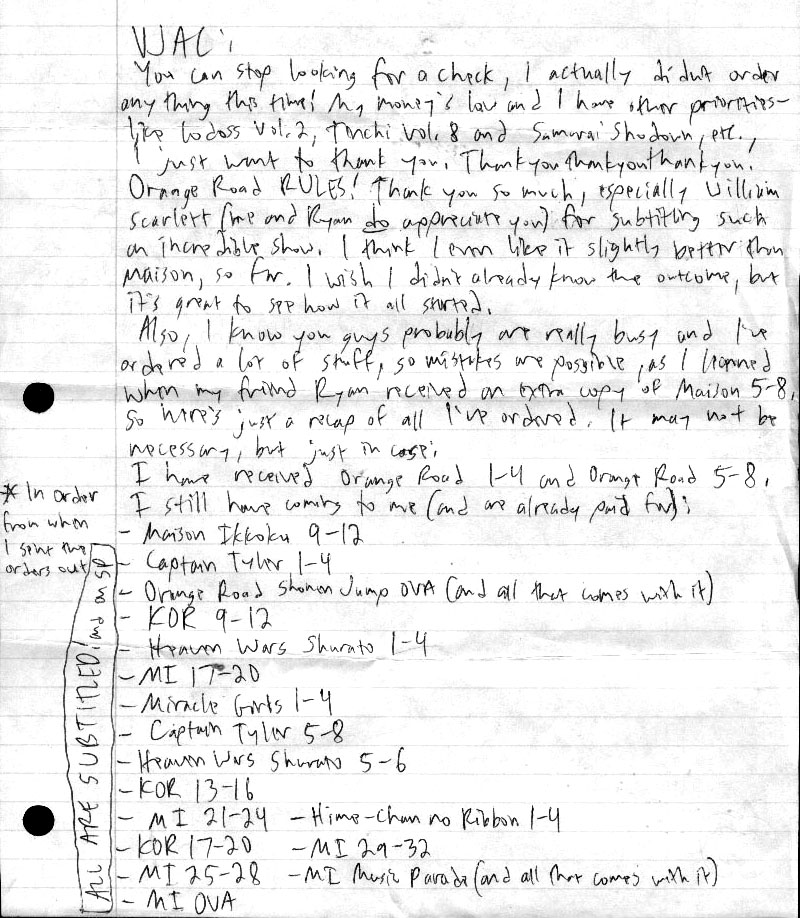 WAC,
You can stop looking for a check, I actually didn't order
anything this time! My money's low and I have other priorities-
like Lodoss Vol. 2, Tenchi Vol. 8 and Samurai Shodown, etc.,
I just want to thank you. Thankyouthankyouthankyou.
Orange Road RULES! Thank you so much, especially William
Scarlett (me and Ryan do appreciate you) for subtitling such
an incredible show. I think I even like it slightly better than
Maison, so far. I wish I didn't already know the outcome, but
it's great to see how it all started.
Also, I know you guys probably are really busy and I've
ordered a lot of stuff, so mistakes are possible, as I learned
when my friend Ryan received an extra copy of Maison 5-8,
so here's just a recap of all I've ordered. It may not be
necessary, but just in case:
I have received Orange Road 1-4 and Orange Road 5-8.
I still have coming to me (and are already paid for):
* In order
from when
I sent the
orders out
ALL ARE SUBTITLED! and on SP
- Maison Ikkoku 9-12
- Captain Tyler 1-4
- Orange Road Shonen Jump OVA (and all that comes with it)
- KOR 9-12
- Heaven Wars Shurato 1-4
- MI 17-20
- Miracle Girls 1-4
- Captain Tyler 5-8
- Heaven Wars Shurato 5-6
- KOR 13-16
- MI 21-24 - Hime-Chan no Ribbon 1-4
- KOR 17-20 - MI 29-32
- MI 25-28 - MI Music Parade (and all that comes with it)
- MI OVA